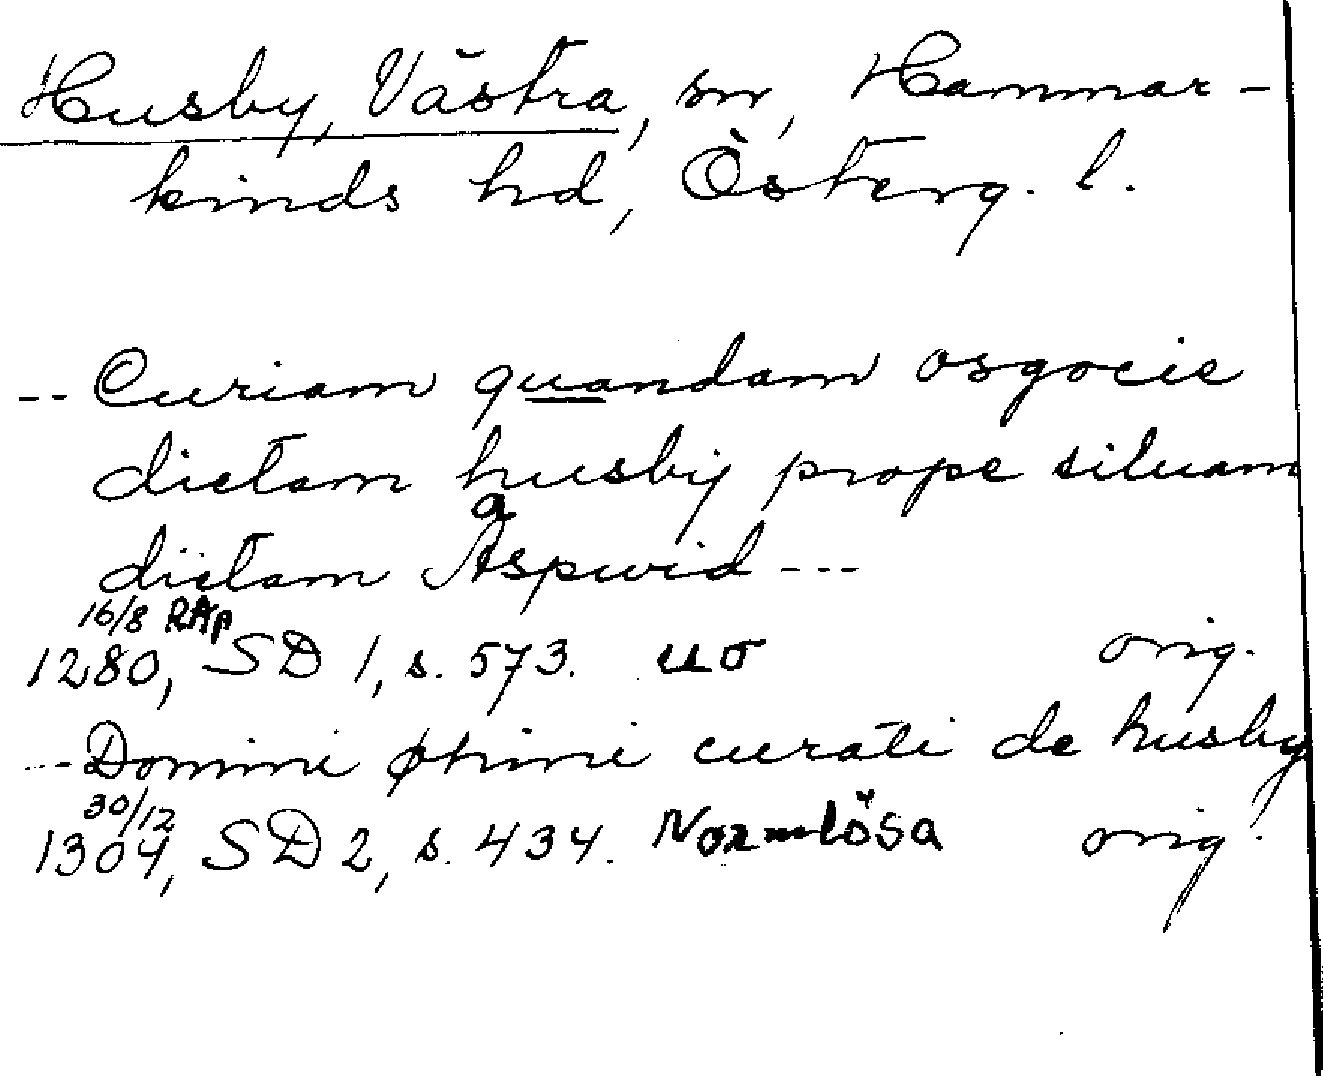 Husby, Västra, sn, Hammar-
kinds hd, Österg. l.
-- Curiam quandam osgocie
dictam husby prope siluam
a
dictam Aspwid ---
16/8 RAp
1280, SD 1, s. 573. uo orig.
--- Domini phimi curati de husby
30/12
1304, SD 2, s. 434. Normlösa orig.